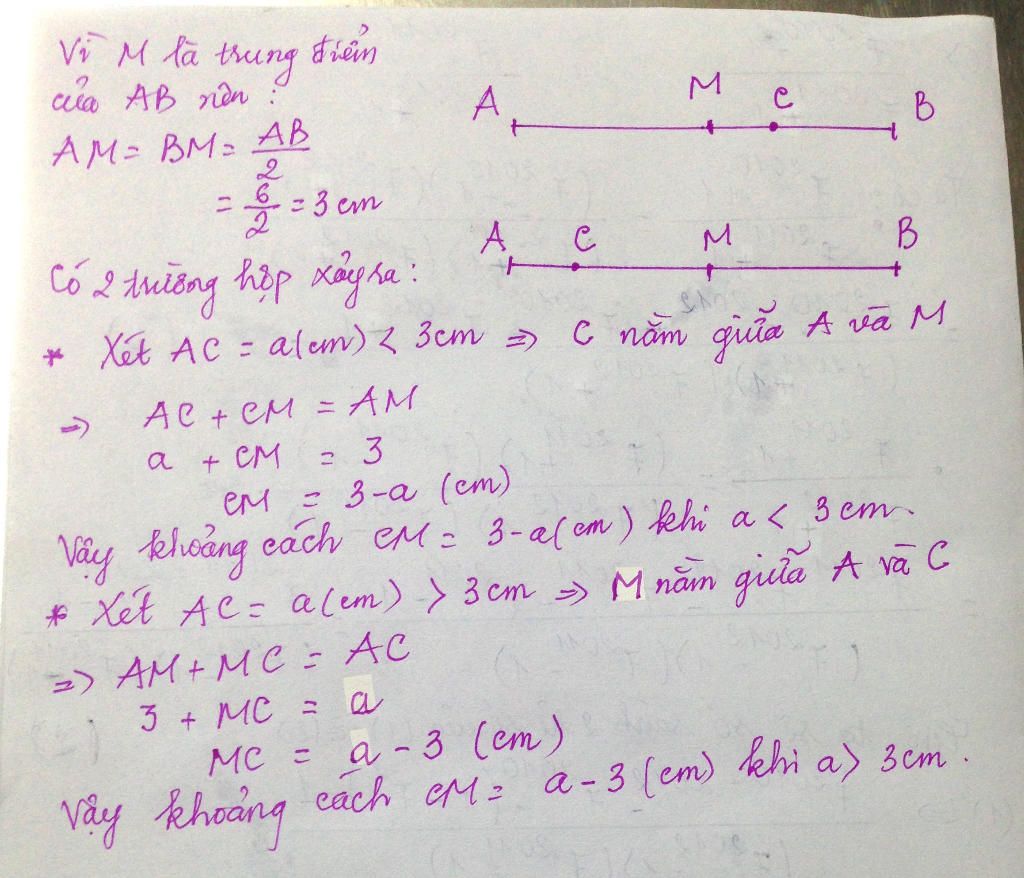 Vì M là trung điểm
của AB nên :
AM = BM = AB/2
= 6/2 = 3 cm
A M C B
A C M B
Có 2 trường hợp xảy ra :
* Xét AC = a(cm) < 3cm => C nằm giữa A và M
=> AC + CM = AM
a + CM = 3
CM = 3-a (cm)
Vậy khoảng cách CM = 3-a(cm) khi a < 3cm.
* Xét AC = a(cm) > 3cm => M nằm giữa A và C
=> AM + MC = AC
3 + MC = a
MC = a - 3 (cm)
Vậy khoảng cách CM = a-3 (cm) khi a > 3cm.